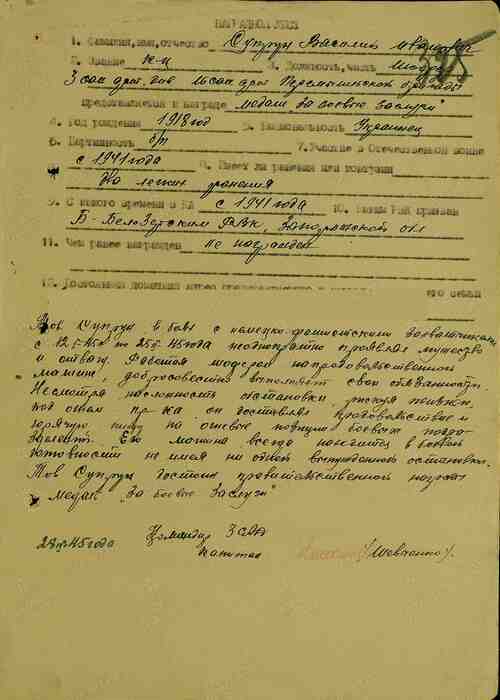 НАГРАДНОЙ ЛИСТ
1. Фамилия, имя, отчество Супрун Василий Иванович
2. Звание к-ц 3. Должность, часть
3 сан. арт. див
представляется к награде медали за боевые заслуги"
4. Год рождения 1918 год 5. Национальность Украинец
6. Партийность б/п 7. Участие в Отечественной войне
с 1941 года 8. Имеет ли ранения или контузии
два легких ранения
9. С какого времени в КА с 1941 года 10. Каким РВК призван
Б-Белозерским РВК, Запорожской обл
11. Чем ранее награжден не награжден
Тов Супрун в боях с немецко-фашистскими захватчиками
неоднократно проявлял мужество
и отвагу. Работая шофером на продовольственной
машине, добросовестно выполняет свои обязанности.
Несмотря на сложность обстановки рискуя жизнью,
под огнем пр-ка он доставлял продовольствие и
горячую пищу на огневые позиции боевых подра-
зделений. Его машина всегда находится в боевой
готовности не имея ни одной вынужденной остановки.
Тов Супрун достоин правительственной награды
медали „За боевые заслуги"
Командир
28 45 года
Капитан /Шевченко/.